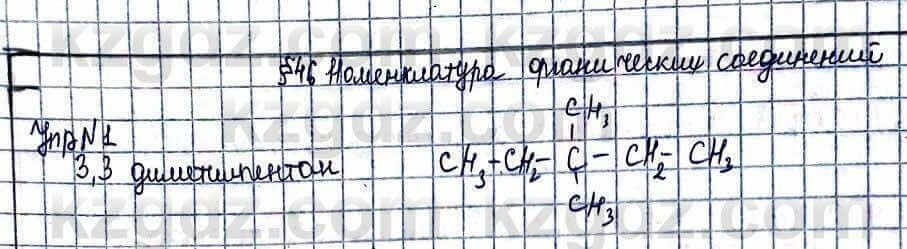 §46 Номенклатура органических соединений
Упр N1
3,3 диметилпентан
CH3
CH3-CH2-C-CH2-CH3
CH3
kzgdz.com